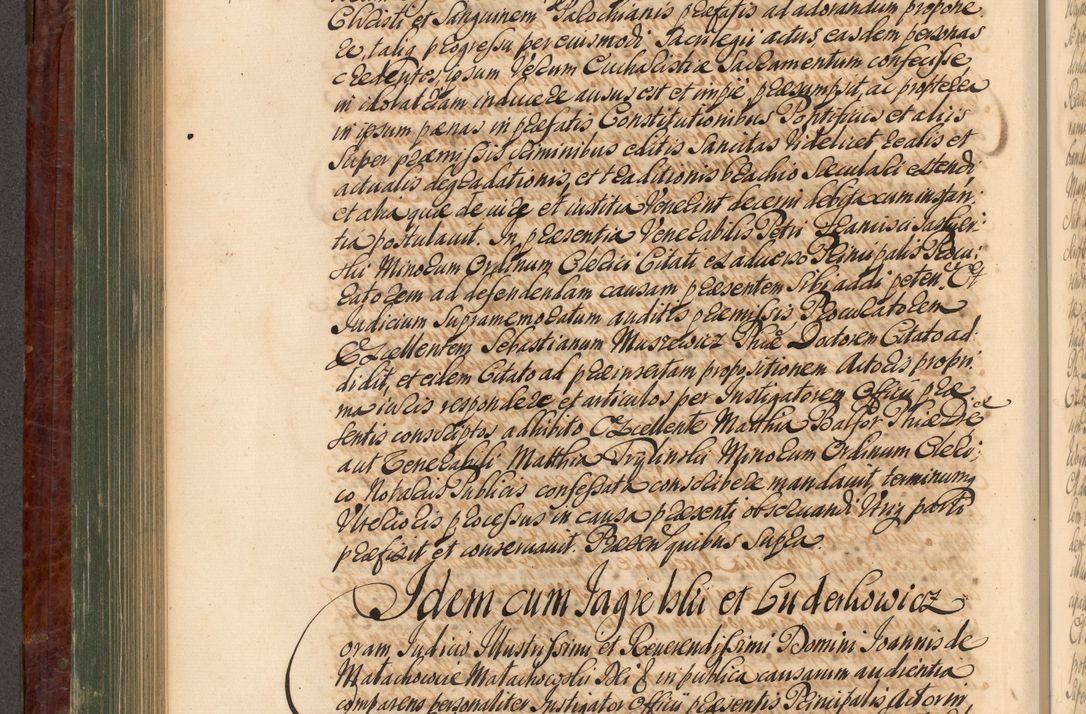 Christi et Sanguinem Parochianis præfatis ad adorandum propone:
re, taliq progressu per eiusmodi Sacrilegii actus easdem personas
credentes ipsum Verum Eucharistiæ Sacramentum confecisse
in idolatriam inducere ausus est et impiè præsumpsit, ac proptereà
in ipsum pænas in præfatis Constitutionibus Pontificiis et aliis
super præmissis criminibus editis sancitas Videlicet realis et
actualis degradationis, et traditionis brachio Sæculari extendi
et alia quæ de iure et iustitia Venerint decerni debita cum instan:
tia postulavit. In præsentia Venerabilis Petri Francisci
Minorum Ordinum Clerici Citati ex adverso Principalis Procu:
ratorem ad defendendam causam præsentem sibi addi peten. Et
Iudicium Supramemoratum auditis præmissis Procuratorem
Excellentem Sebastianum Muszewicz Phiæ Doctorem Citato ad:
didit, et eidem Citato ad præinsertam propositionem Actoris propri:
ma iuris respondere et articulos per Instigatorem Officii præ
sentis conscriptos adhibito Excellente Matthia Balfor Phiæ Dre
aut Venerabili Matthia Minorum Ordinum Cleri:
co Notariis Publicis confessata conscribere mandavit, terminumq
Ulterioris processus in causa præsenti observandi Utriq parti
præfixit et conservavit. Præsen quibus Supra.
Idem cum Jagielski et Guderkowicz
oram Iudicio Illustrissimi et Reverendissimi Domini Ioannis de
Małachowice Małachowski Dei & in publica causarum audientia
comparens personaliter Instigator Officii præsentis Principalis Actor in